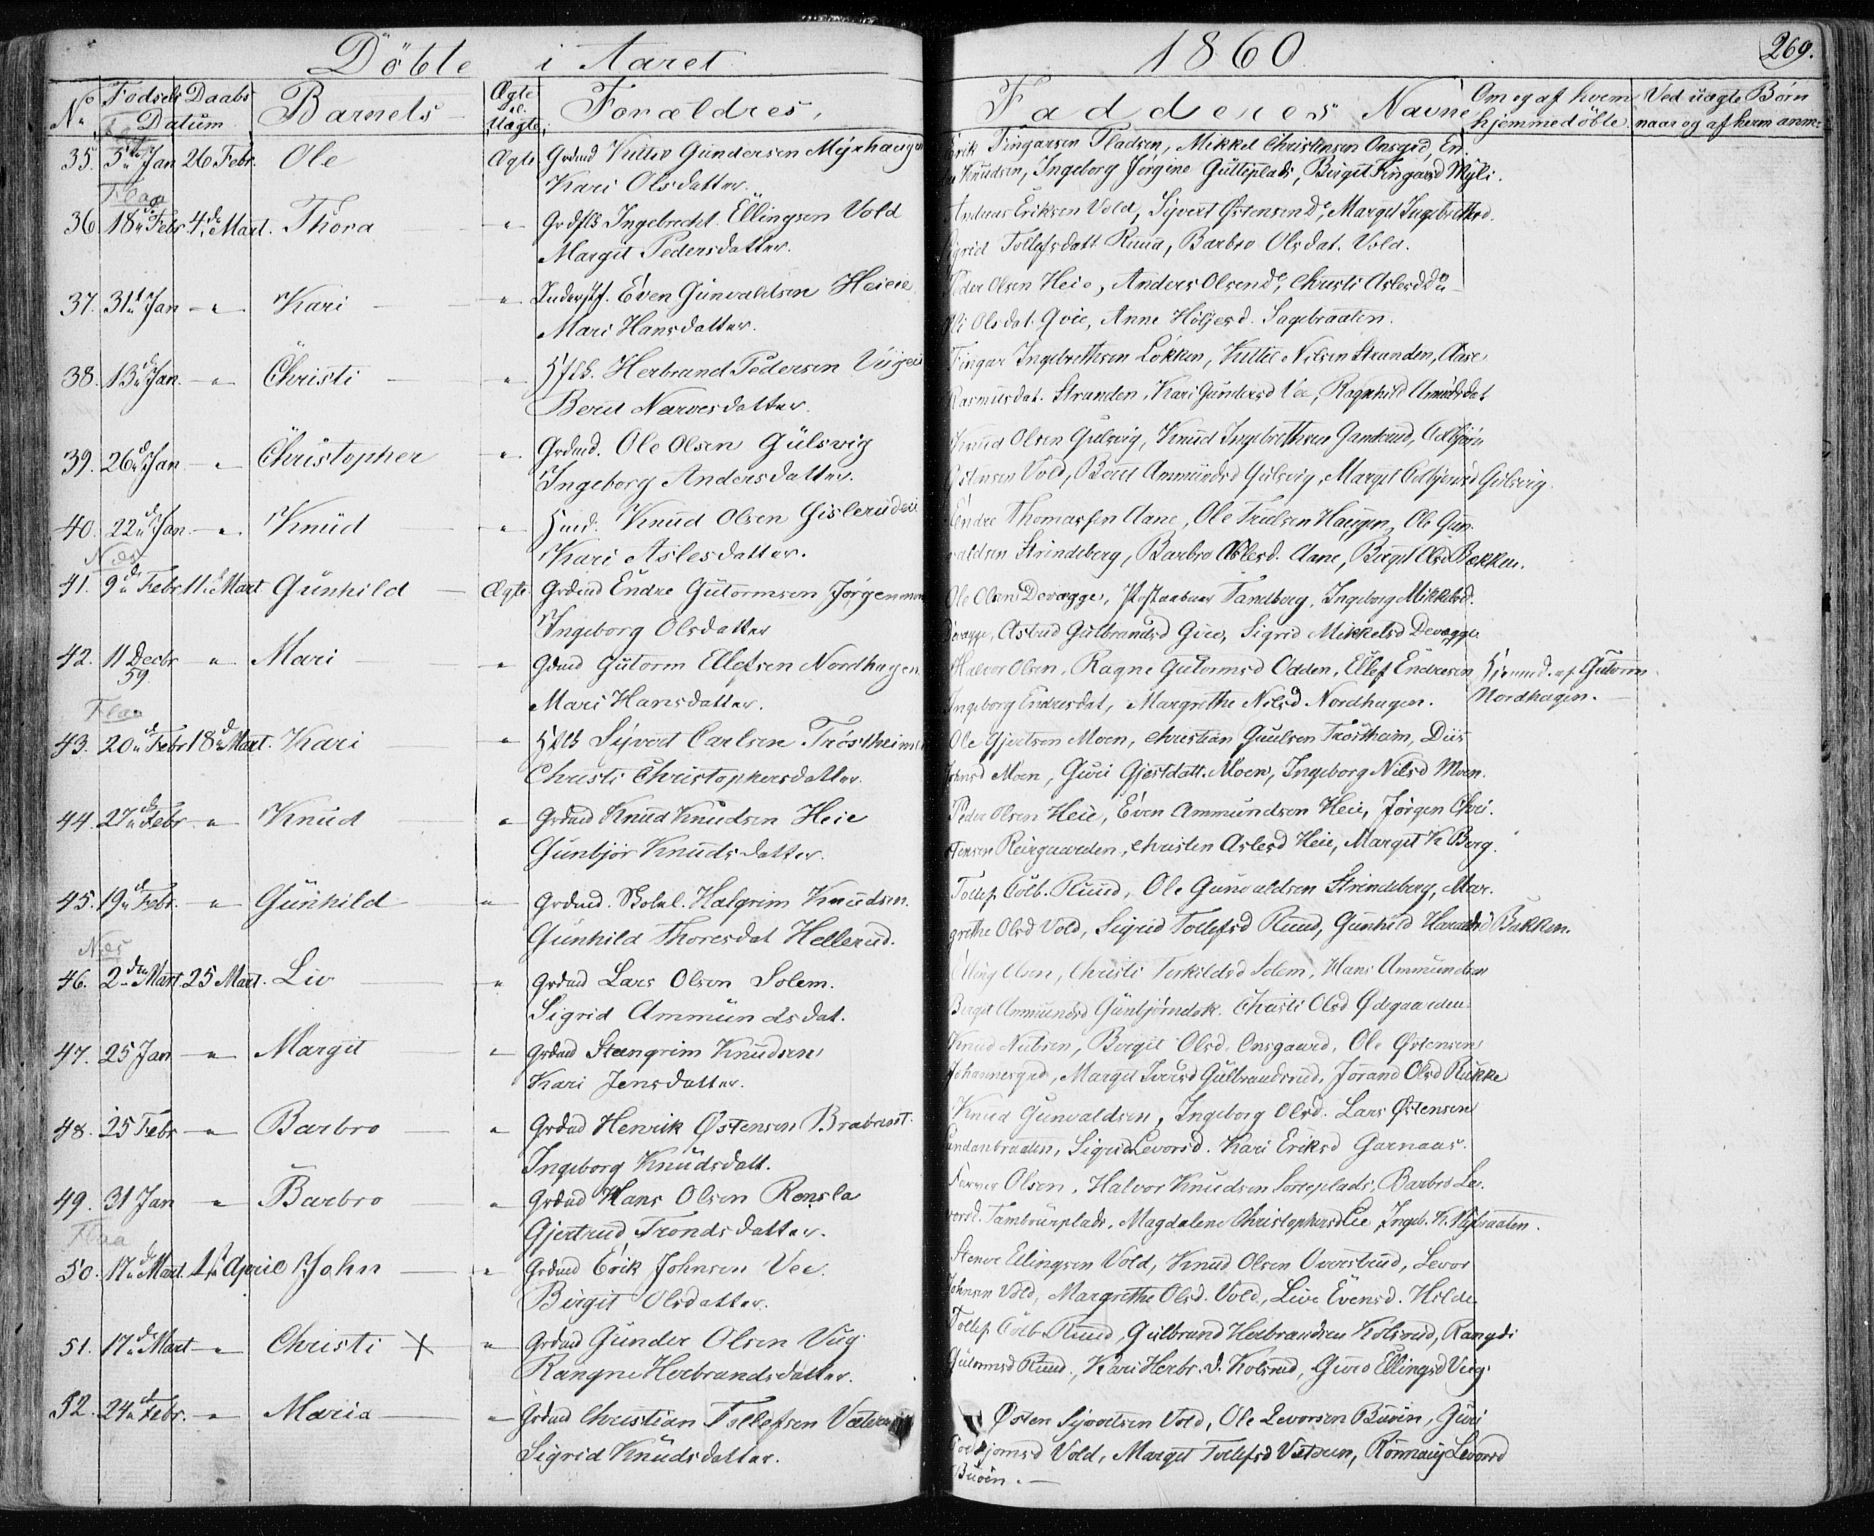 Döbte i Aaret 1860. 269.
No Fødsels Daabs Barnets Ægte el. Uægte Forældres, Faddernes Navne Om og af hvem Ved uægte Børn
Datum hjemmedöbte. naar og af hvem anm:
35. 5te Jan 26 Febr. Ole Ægte Grdmd Vittio Gundersen Myrhaugen Erik Fingarsen Pladsen, Mikkel Christensen Onsgrd, En-
Kari Olsdatter. Knudsen, Ingeborg Jørgine Gulteplads, Birgit Fingarsd Myli.
Flaa
36. 18de Febr 4de Mart. Thora " Ingebrecht Ellingsen Vold Andreas Eriksen Vold, Syvert Østensen Do, Margit Ingebrethsd.
Margit Pedersdatter. Sigrid Tollefsdatt Ruud, Barbro Olsdat. Vold.
37. 31te Jan " Kari " Inderst. Even Gunvaldsen Heieie Peder Olsen Heie, Anders Olsen do, Christi Aslesd do
Mari Hansdatter. Olsdat. Gvie, Anne Høljesd. Sagebraaten.
38. 13de Jan. " Christi " Hfld. Herbrand Pedersen Fingar Ingebrethsen Løkken, Vittie Nilsen Stranden, Aase
Berit Narvesdatter. Rasmusdat. Stranden, Kari Gundersd Vee, Ragnhild Amundsdat
39. 26de Jan " Christopher " Grdmd. Ole Olsen Gulsvig Knud Olsen Gulsvig, Knud Ingebrethsen Gandrud,
Ingeborg Andersdatter. Østensen Vold, Berit Ammundsd Gulsvig, Margit Gulsvig.
40. 22de Jan " Knud " Knud Olsen Gislerudeie Endre Thomassen Aane, Ole Trulsen Haugen, Ole Gun-
Kari Aslesdatter. valdsen Strindeberg, Barbro Aslesd. Aane, Birgit Olsd Bækken.
Næs
41. 9de Febr 11te Mart Gunhild Ægte Grdmd Endre Gutormsen Jørgenmoen Ole Olsen Devegge, Postaabner Tandberg, Ingeborg Mikkelsd.
Ingeborg Olsdatter Devegge, Astrid Gulbrandsd Gvie, Sigrid Mikkelsd Devegge
42. 11 Decbr 59 " Mari " Gdmd Gutorm Ellefsen Nordhagen Halvor Olsen, Ragne Gutormsd Odden, Ellef Endresen Hjemmd. af Gutorm
Mari Hansdatter. Ingeborg Endresdat, Margrethe Nilsd Nordhagen. Nordhagen.
Flaa
43. 20de Febr 18de Mart. Kari " Hfld Syvert Carlsen Trøstheim Ole Gjertsen Moen, Christian Guulsen Trøstheim, Diis
Christi Christophersdatter. Johnsd Moen, Guri Gjestdatt. Moen, Ingeborg Nilsd Moen.
44. 27de Febr " Knud " Grdmd Knud Knudsen Heie Peder Olsen Heie, Even Ammundsen Heie, Jørgen Chri-
Gunbjør Knudsdatter. stensen Roirgaarden, Christen Aslesd Heie, Margit K Berg.
45. 19de Febr. " Gunhild " Grdmd. Skolel. Halgrim Knudsen. Tollef Colb. Ruud, Ole Gunvaldsen Strindeberg, Mar-
Gunhild Thoresdat Hellerud. grethe Olsd Vold, Sigrid Tollefsd Ruud, Gunhild Bakken.
Næs
46. 2den Mart. 25 Mart. Liv " Grdmd Lars Olsen Solem. Elling Olsen, Christi Torkildsd Solem, Hans Ammundsen
Sigrid Ammundsdat. Birgit Ammundsd Gunbjørndok. Christi Olsd Ødegaarden.
47. 25 Jan " Margit " Grdmd Steengrim Knudsen Knud Nubsen, Birgit Olsd. Onsgaard, Ole Østensen
Kari Jensdatter. Johannesgrd, Margit Iversd Gulbrandsrud, Jørand Olsd Rukke
48. 25 Febr " Barbro " Grdmd Henrik Østensen Brabrast. Knud Gunvaldsen, Ingeborg Olsd. Lars Østensen
Ingeborg Knudsdatt. Sigrid Levorsd. Kari Eriksd Garnaas.
49. 31 Jan " Barbro " Grdmd Hans Olsen Rensla Olsen, Halvor Knudsen Sorteplads, Barbro Le-
Gjertrud Trondsdatter. vorsd. Tambourplads, Magdalene Christophersd Lie, Ingeb. K.
Flaa
50. 17de Mart. 1ste April John " Grdmd Erik Johnsen Vee. Stener Ellingsen Vold, Knud Olsen Overstrud, Levor
Birgit Olsdatter. Johnsen Vold, Margrethe Olsd. Vold, Live Evensd. Hilde.
51. 17de Mart " Christi X " Grdmd Gunder Olsen Vug Tollef Colb. Ruud, Gulbrand Herbrandsen Kolsrud, Rangdi
Rangne Herbrandsdatter. Gutormsd Ruud, Kari Herbr. D. Kolsrud, Guro Ellingsd Vug.
52. 24de Febr. " Maria " Grdmd Christian Tollefsen Østen Syvertsen Vold, Ole Levorsen Buvin, Guri
Sigrid Knudsdatter. Vold, Margit Tollefsd, Rønnaug Levorsd
Buvin.